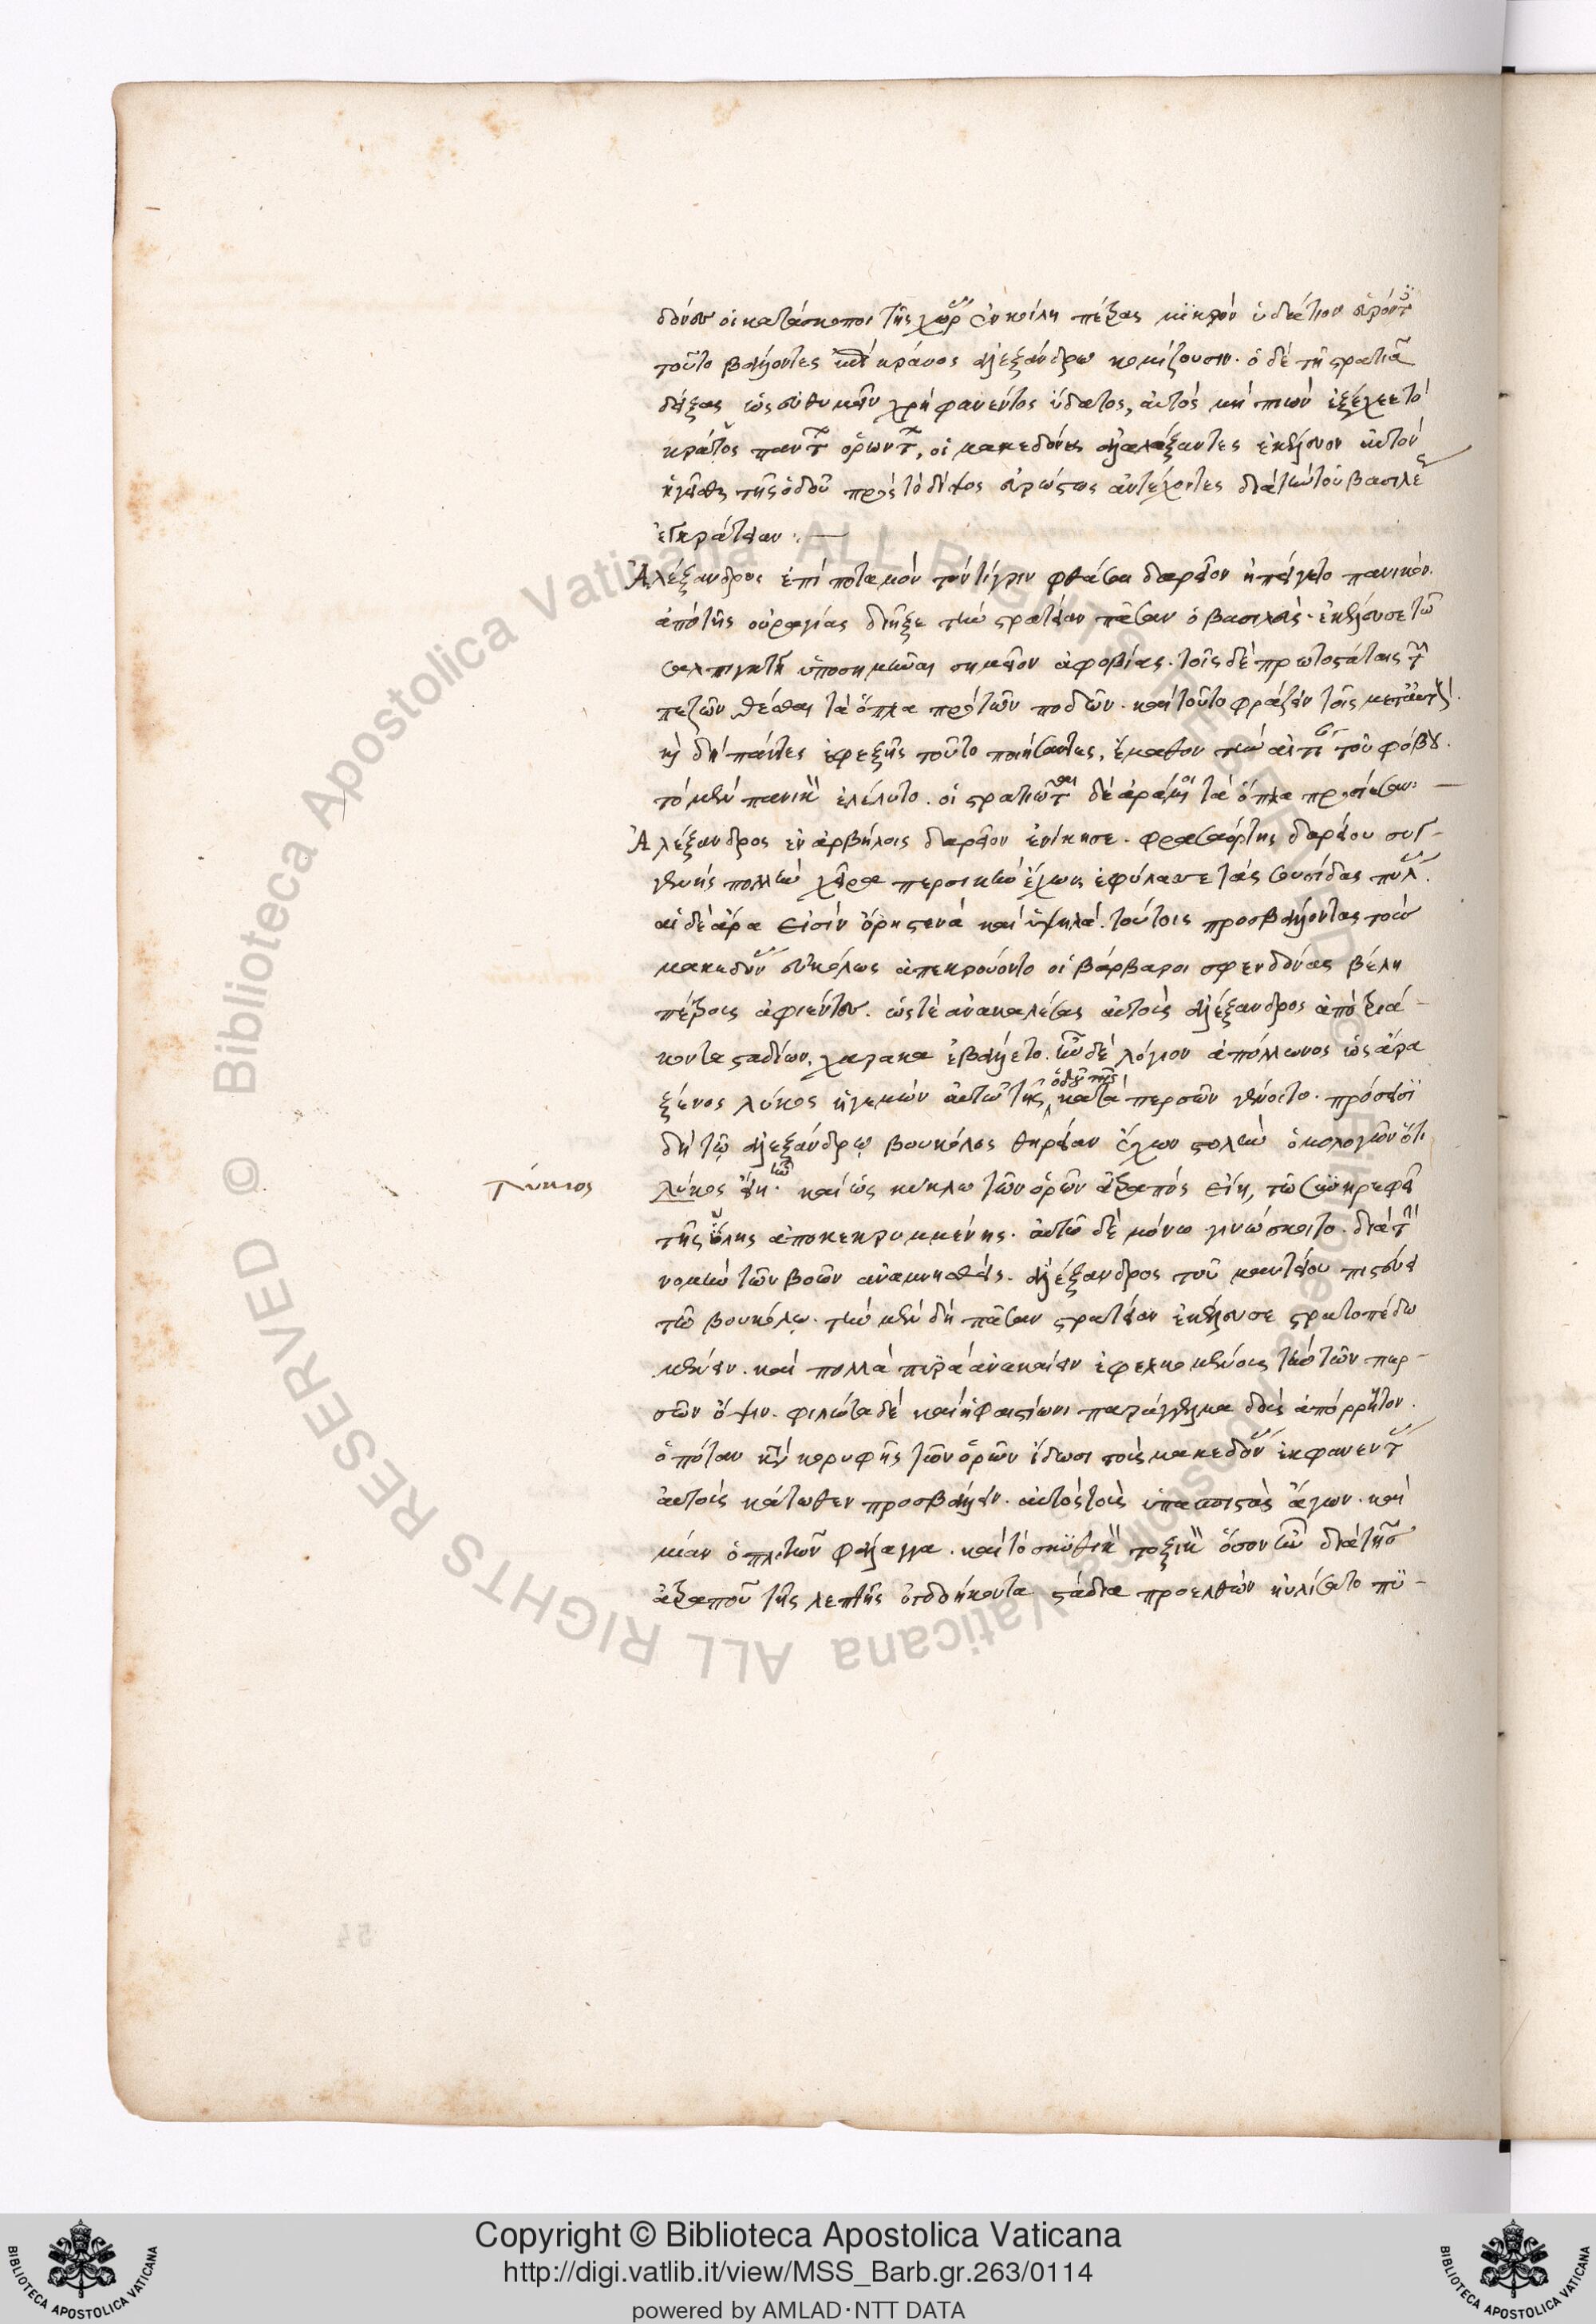 δόνων οἱ κατάσκοποι τῆς χώρ ἐν κοίλη πέτρας μικρὸν ὑδάτιον εὑρόντ
τοῦτο βαλόντες κράνος ἀλεξάνδρω κομίζουσιν. ὁ δὲ τῆ στρατιᾶ
δείξας ὡς εὐθυμεῖν χρὴ φανέντος ὕδατος, αὐτὸς μὴ πιὼν ἐξέχεε τὸ
κράνος παντ ὁρωντ, οἱ μακεδόνες ἀλαλάξαντες ἐκέλευον αὐτὸν
ἡγεῖσθαι τῆς ὁδοῦ πρὸς τὸ δίψος εὐρώστως ἀντέχοντες διὰ τὴν τοῦ βασιλε
ἐγκράτειαν
Ἀλέξανδρος ἐπὶ ποταμὸν τὸν τίγριν φθάσαι δαρεῖον ἠπείγετο πανικὸν.
ἀπὸ τῆς οὐραγίας διῆξε τὴν στρατείαν πᾶσαν ὁ βασιλεὺς. ἐκέλευσε τῶ
σαλπιγκτῆ ὑποσημῆναι σημεῖον ἀφοβίας. τοῖς δὲ πρωτοστάταις τ
πεζῶν θέσθαι τὰ ὅπλα πρὸ τῶν ποδῶν. καὶ τοῦτο φράζειν τοῖς μετ
δὴ πάντες ἐφεξῆς τοῦτο ποιήσαντες, ἔμαθον τὴν αἰτι τοῦ φόβου.
τὸ μὲν πανικ ἐλέλυτο. οἱ στρατιωτ δὲ ἀράμ τὰ ὅπλα προήεσαν
Ἀλέξανδρος ἐν ἀρβήλοις δαρεῖον ἐνίκησε. φρασαόρτης δαρείου συγ-
γενὴς πολλὴν χεῖρα περσικὴν ἔχων ἐφύλαττε τὰς σουσίδας πύλ.
αἱ δὲ ἄρα εἰσὶν ὄρη στενὰ καὶ ὑψηλά. τούτοις προσβαλόντας τοὺς
μακεδον εὐκόλως ἀπεκρούοντο οἱ βάρβαροι σφενδόνας βέλη
πέτροις ἀφιέντων. ὥς τε ἀνακαλέσας αὐτοὺς ἀλέξανδρος ἀπὸ τριά-
κοντα σταδίων, χάρακα ἐβάλλετο. ἦν δὲ λόγιον ἀπόλλωνος ὡς ἄρα
ξένος λύκος ἡγεμὼν αὐτῶ τῆς ὁδοῦ τῆς κατὰ περσῶν γένοιτο. πρόσεισι
δὴ τῷ ἀλεξάνδρῳ βουκόλος θηρείαν ἔχων στολὴν ὁμολογῶν ὅτι
λύκιος λύκος εἴη. καὶ ὡς κύκλω τῶν ὀρῶν ἀτραπὸς εἴη, τῶ συσκιῳ κρυφῆ
τῆς ὕλης ἀποκεκρυμμένης. αὐτῶ δὲ μόνω γινώσκοιτο. διὰ τ
νομὴν τῶν βοῶν ἀναμνησθεὶς. ἀλέξανδρος τοῦ μαντείου πιστεύει
τῶ βουκόλῳ. τὴν μὲν δὴ πᾶσαν στρατείαν ἐκέλευσε στρατοπέδω
μένειν. καὶ πολλὰ πυρὰ ἀνακαίειν ἐφελκομένοις τὴν τῶν περ-
σῶν ὄψιν. φιλώτα δὲ καὶ ἡφαιστίωνι παράγγελμα δοὺς ἀπόρρητον.
ὁπόταν κορυφῆς τῶν ὀρῶν ἴδωσι τοὺς μακεδον ἐκφανεντ
αὐτοὺς κάτωθεν προσβάλλειν. αὐτὸς τοὺς ὑπασπιστὰς ἄγων. καὶ
μίαν ὁπλιτῶν φάλαγγα. καὶ τὸ σκυθικ τοξικ ὅσον ἦν διὰ τῆς
ἀτραποῦ τῆς λεπτῆς ὀγδοήκοντα στάδια προελθὼν ηὐλίσατο πυ-
Copyright © Biblioteca Apostolica Vaticana
http://digi.vatlib.it/view/MSS_Barb.gr.263/0114
powered by AMLAD·NTT DATA
© Biblioteca Apostolica Vaticana ALL RIGHTS RESERVED
BIBLIOTECA APOSTOLICA VATICANA
BIBLIOTECA APOSTOLICA VATICANA